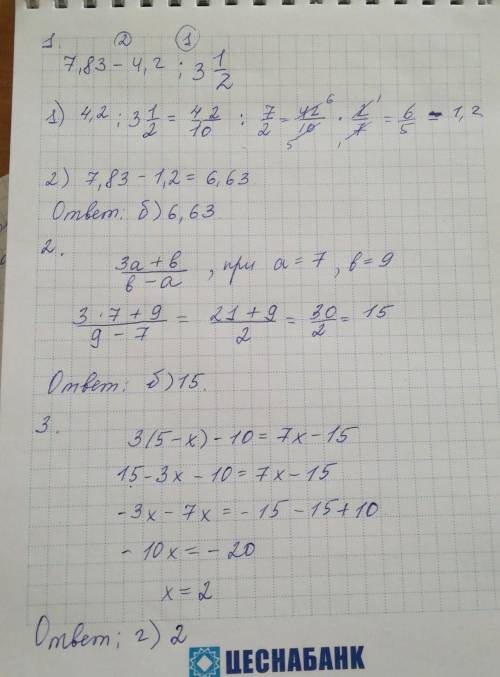 1. ② ①
7,83 - 4,2 : 3 1/2
1) 4,2 : 3 1/2 = 42/10 : 7/2 = 42 6/10 5 · 2 1/7 1 = 6/5 = 1,2
2) 7,83 - 1,2 = 6,63
Ответ: б) 6,63
2.
3a + в / в - a , при a = 7 , в = 9
3 · 7 + 9 / 9 - 7 = 21 + 9 / 2 = 30/2 = 15
Ответ: б) 15.
3.
3(5 - x) - 10 = 7x - 15
15 - 3x - 10 = 7x - 15
-3x - 7x = -15 - 15 + 10
- 10x = - 20
x = 2
Ответ: г) 2
ЦЕСНАБАНК